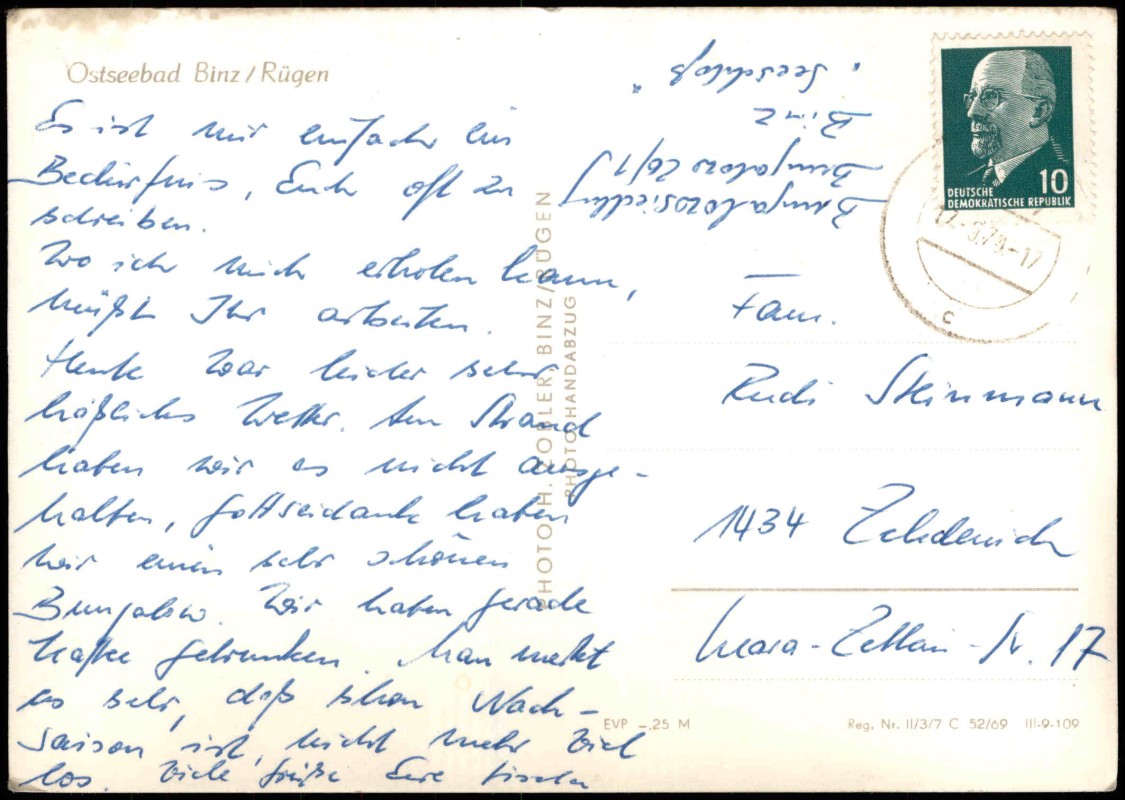 Ostseebad Binz/Rügen
Es ist mir einfach ein
Bedürfnis, Euch oft zu
schreiben.
Wo ich mich erholen kann,
müßt Ihr arbeiten.
Heute war leider sehr
häßliches Wetter. Am Strand
haben wir es nicht ausge-
halten, Gottseidank haben
wir einen sehr schönen
Bungalow. Wir haben gerade
Kaffee getrunken. Man merkt
es sehr, daß schon Nach-
saison ist, nicht mehr viel
los. Viele Grüße Eure
Bungalowsiedlung
Bungalow 26/1
Binz
"Seeschloß"
PHOTO H. KOBLER, BINZ/RÜGEN
PHOTO-HANDABZUG
10
DEUTSCHE
DEMOKRATISCHE REPUBLIK
c
Fam.
Rudi Steinmann
1434 Zehdenick
Clara-Zetkin-Str. 17
EVP -,25 M
Reg. Nr. II/3/7 C 52/69 III-9-109